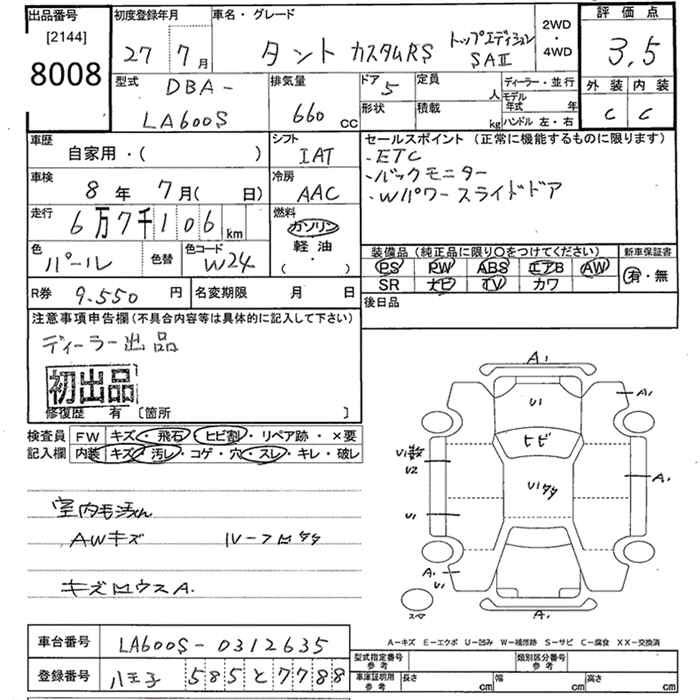 出品番号 [2144] 8008
初度登録年月 27年 7月
車名・グレード タント カスタムRS トップエディション SAⅡ
2WD・4WD
評価点 3.5
外装 C 内装 C
型式 DBA-LA600S
排気量 660 cc
ドア 5
定員 人
形状
積載 kg
ディーラー・並行
モデル年式 年
ハンドル 左・右
車歴 自家用・( )
シフト IAT
セールスポイント (正常に機能するものに限ります)
・ETC
・バックモニター
・Wパワースライドドア
車検 8年 7月( 日)
冷房 AAC
走行 6万7千106 km
燃料 ガソリン 軽油 ( ・ )
色 パール 色替 色コード W24
装備品 (純正品に限り○をつけてください) 新車保証書
PS PW ABS エアB AW 有・無
SR ナビ TV カワ
R券 9.550円 名変期限 月 日
後日品
注意事項申告欄(不具合内容等は具体的に記入して下さい)
ディーラー出品
初出品
修復歴 有 〔箇所 〕
検査員記入欄
FW キズ・飛石・ヒビ割・リペア跡・×要
内装 キズ・汚レ・コゲ・穴・スレ・キレ・破レ
室内毛汚れ
AWキズ ルーフロタタ
キズロウスA.
A1
U1
A1
ヒビ
U1数
U2
U1タタ
A1
U1
A1
U1
スマ
A1
A-キズ E-エクボ U-凹み W-補修跡 S-サビ C-腐食 XX-交換済
車台番号 LA600S-0312635
型式指定番号 参考
類別区分番号 参考
登録番号 八王子 585 と 7788
車庫証明用 参考 長さ cm 幅 cm 高さ cm